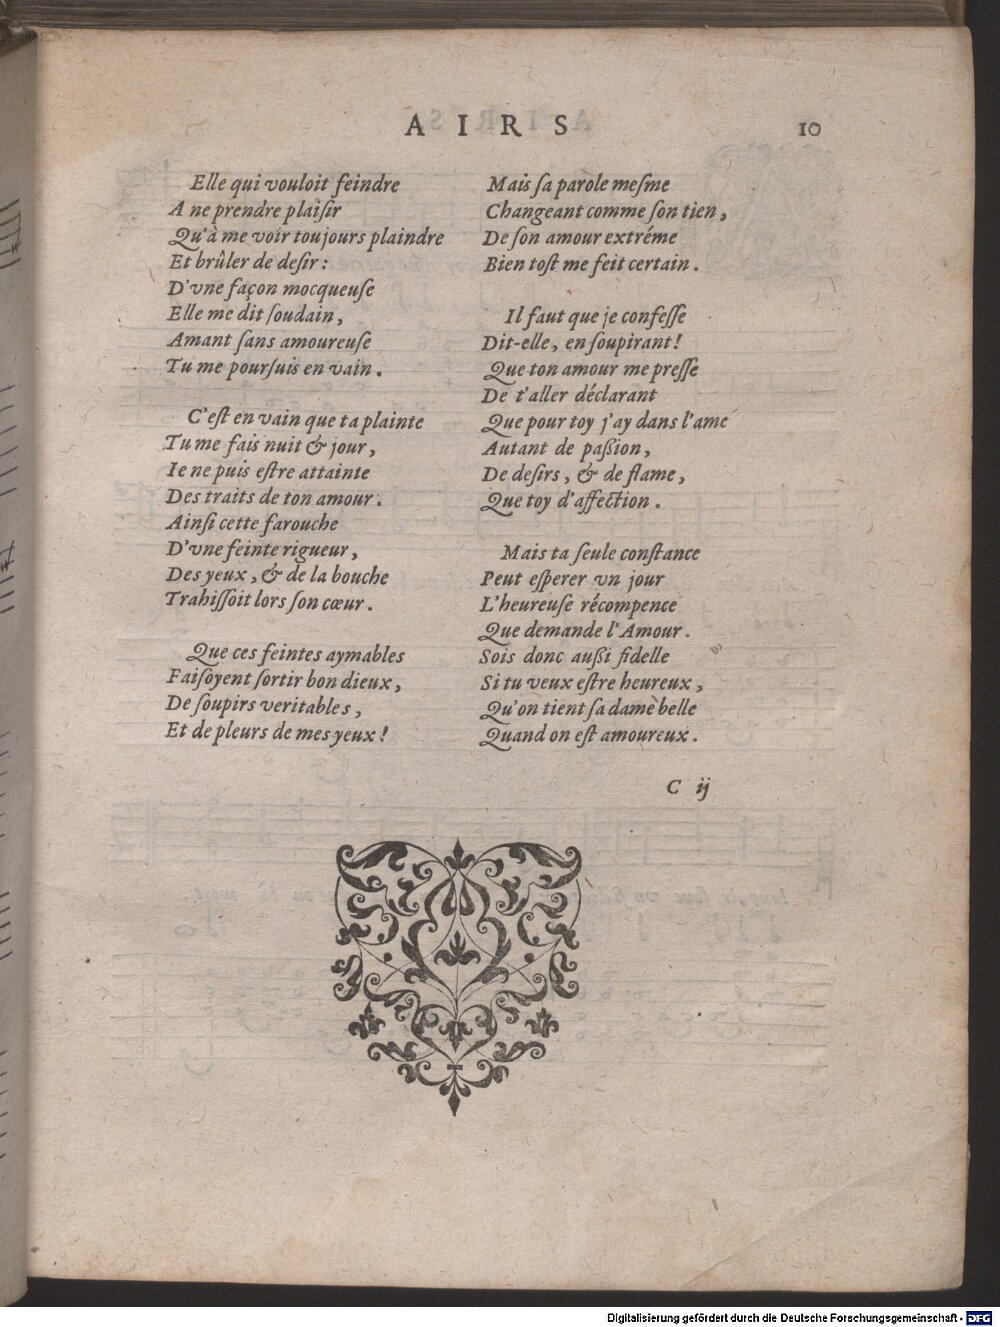 AIRS 10
Elle qui vouloit feindre
A ne prendre plaiſir
Qu'à me voir toujours plaindre
Et brûler de deſir:
D'vne façon mocqueuſe
Elle me dit ſoudain,
Amant ſans amoureuſe
Tu me pourſuis en vain.
C'eſt en vain que ta plainte
Tu me fais nuit & jour,
Ie ne puis eſtre attainte
Des traits de ton amour.
Ainſi cette farouche
D'vne feinte rigueur,
Des yeux, & de la bouche
Trahiſſoit lors ſon cœur.
Que ces feintes aymables
Faiſoyent ſortir bon dieux,
De ſoupirs veritables,
Et de pleurs de mes yeux!
Mais ſa parole meſme
Changeant comme ſon tien,
De ſon amour extréme
Bien toſt me feit certain.
Il faut que je confeſſe
Dit-elle, en ſoupirant!
Que ton amour me preſſe
De t'aller déclarant
Que pour toy j'ay dans l'ame
Autant de paßion,
De deſirs, & de flame,
Que toy d'affection.
Mais ta ſeule conſtance
Peut eſperer vn jour
L'heureuſe récompence
Que demande l'Amour.
Sois donc außi fidelle
Si tu veux eſtre heureux,
Qu'on tient ſa dame belle
Quand on eſt amoureux.
C ij
Digitalisierung gefördert durch die Deutsche Forschungsgemeinschaft - DFG